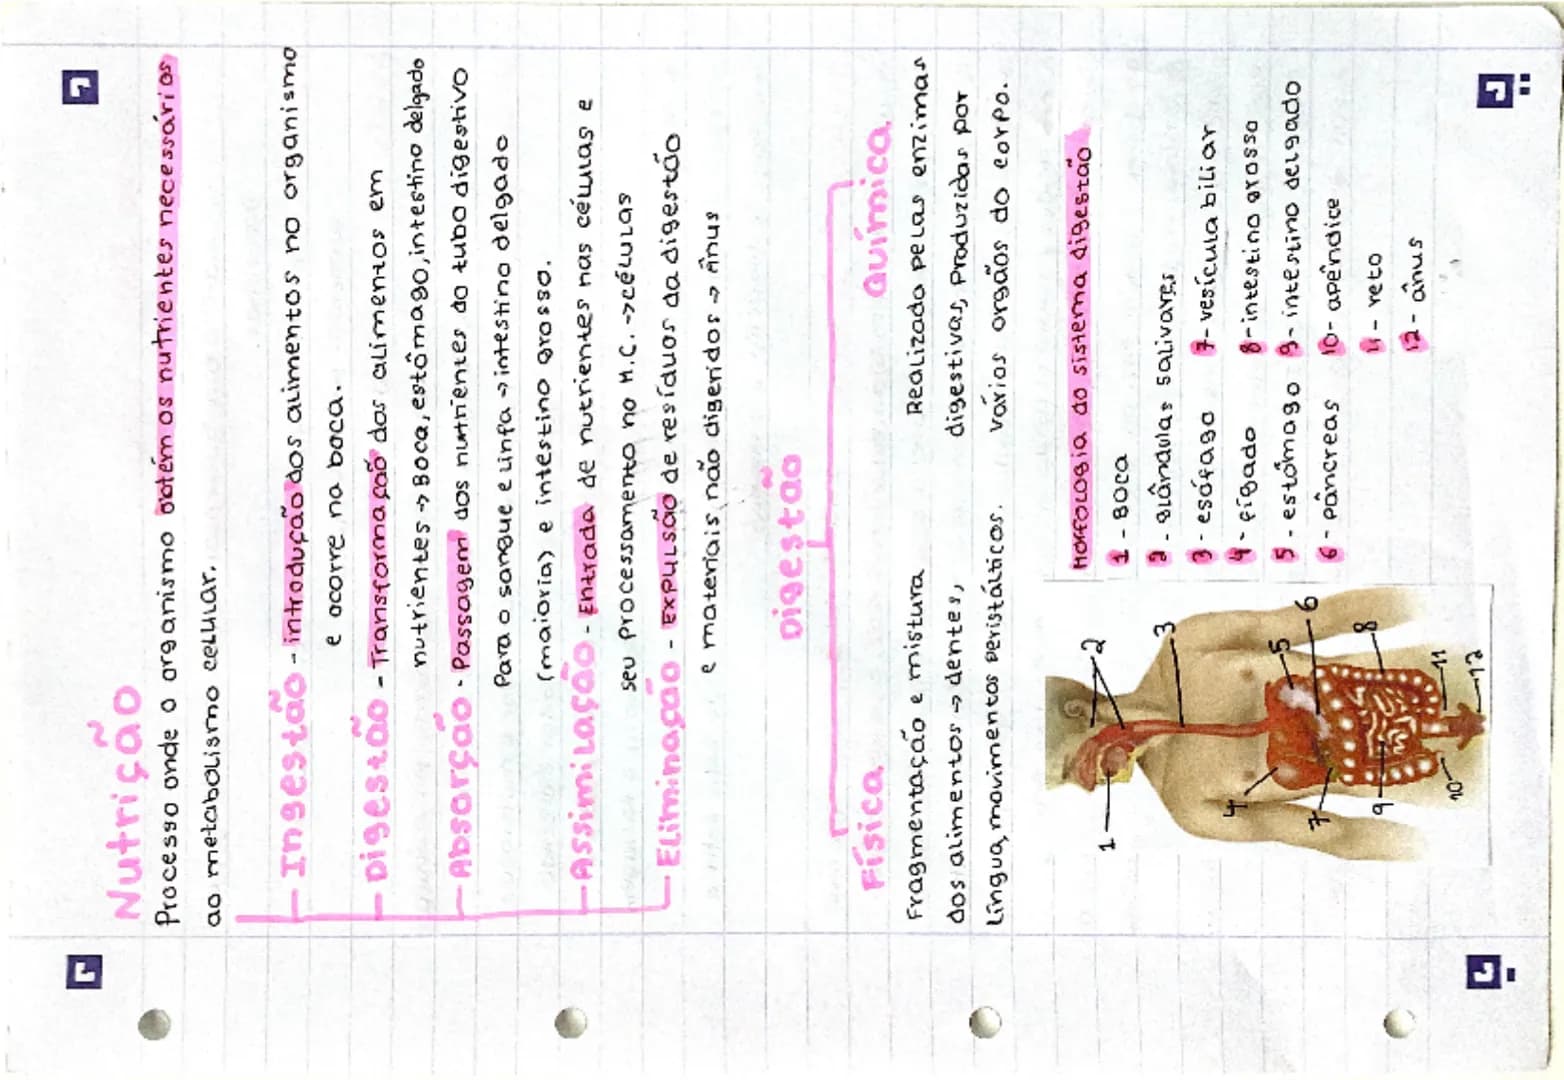 Nutrição
Processo onde o organismo obtém os nutrientes necessários
ao metabolismo celular.
Ingestão - introdução dos alimentos no organismo
e ocorre na boca.
Digestão - Transformação dos alimentos em
nutrientes → Boca, estômago, intestino delgado
Absorção - Passagem dos nutrientes do tubo digestivo
Para o sangue e linfa → intestino delgado
(maioria) e intestino grosso.
Assimilação - Entrada de nutrientes nas células e
seu processamento no M.C. → células
Eliminação - Expulsão de resíduos da digestão
e materiais não digeridos → Ânus
Digestão
Física
Química
Fragmentação e mistura
dos alimentos → dentes,
língua, movimentos peristálticos.
Realizada pelas enzimas
digestivas, Produzidas por
vários orgãos do corpo.
Morfologia do sistema digestão
1 - Boca
2 - glândulas salivares
3 - esófago
4 - fígado
5 - estômago
6 - pâncreas
7 - vesícula biliar
8 - intestino grosso
9 - intestino delgado
10 - apêndice
11 - reto
12 - ânus
1
2
3
4
5
6
7
8
9
10
11
12